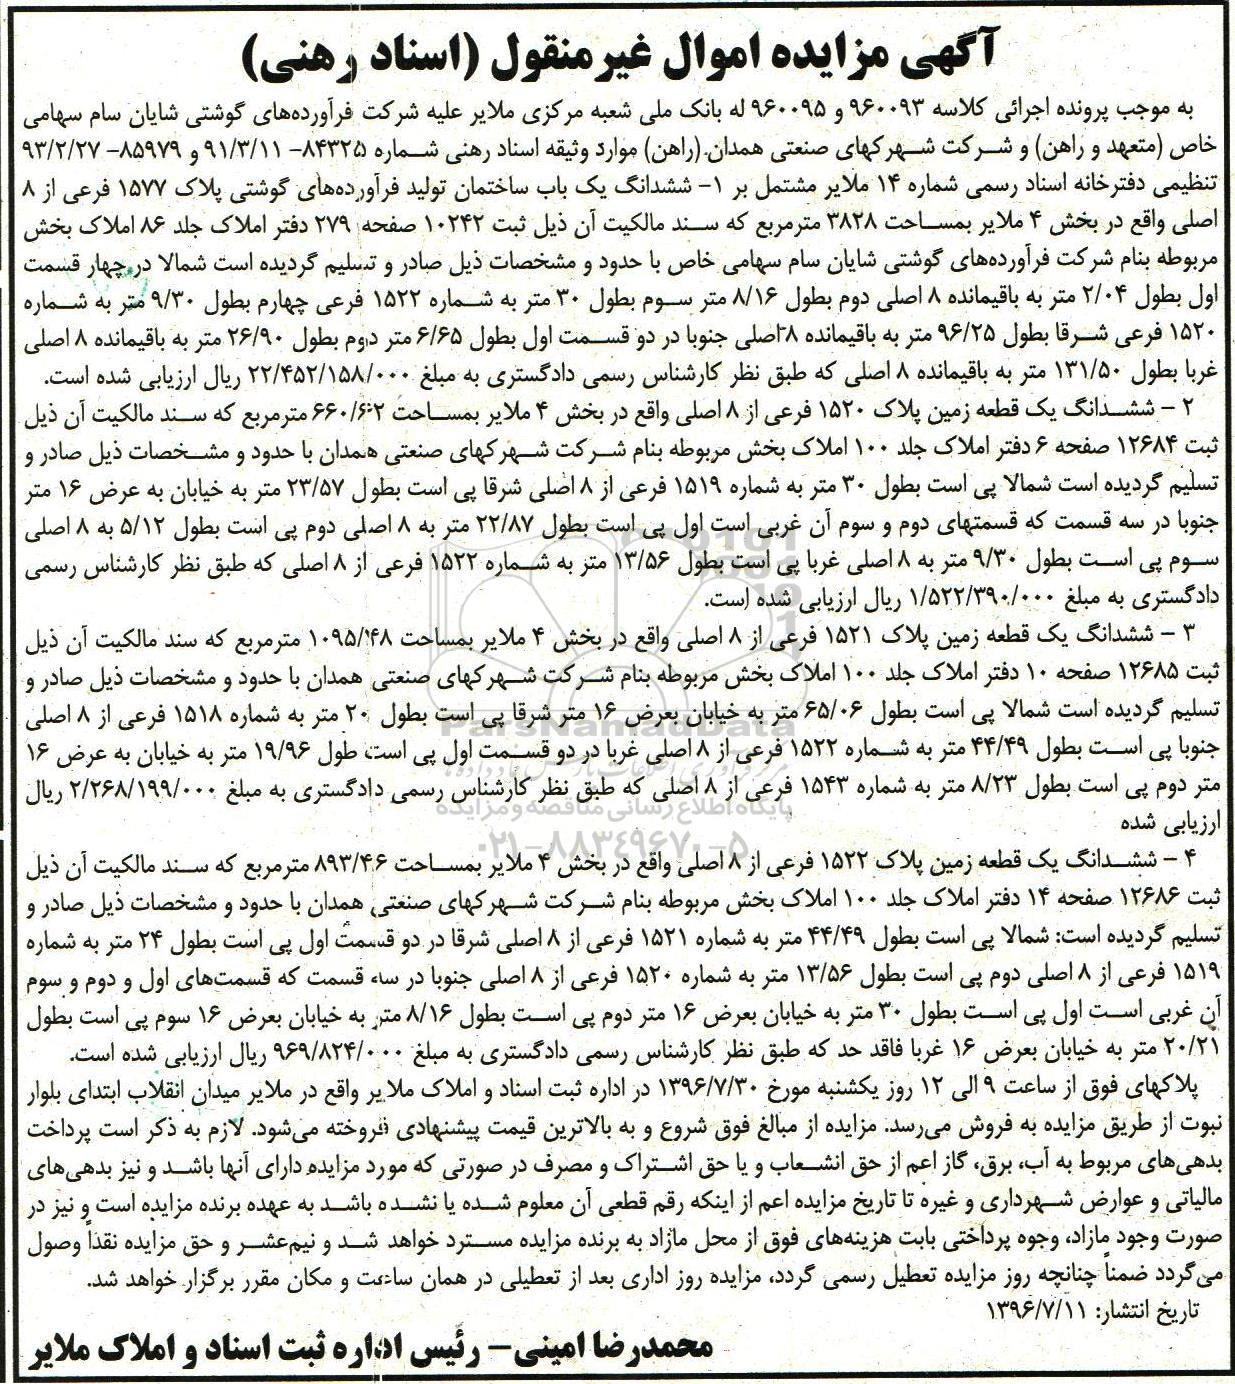 آگهی مزایده اموال غیرمنقول (اسناد رهنی)
به موجب پرونده اجرائی کلاسه ۹۶۰۰۹۳ و ۹۶۰۰۹۵ له بانک ملی شعبه مرکزی ملایر علیه شرکت فرآورده‌های گوشتی شایان سام سهامی
خاص (متعهد و راهن) و شرکت شهرکهای صنعتی همدان.(راهن) موارد وثیقه اسناد رهنی شماره ۸۴۳۲۵– ۹۱/۳/۱۱ و ۸۵۹۷۹– ۹۳/۲/۲۷
تنظیمی دفترخانه اسناد رسمی شماره ۱۴ ملایر مشتمل بر ۱– ششدانگ یک باب ساختمان تولید فرآورده‌های گوشتی پلاک ۱۵۷۷ فرعی از ۸
اصلی واقع در بخش ۴ ملایر بمساحت ۳۸۲۸ مترمربع که سند مالکیت آن ذیل ثبت ۱۰۲۴۲ صفحه ۲۷۹ دفتر املاک جلد ۸۶ املاک بخش
مربوطه بنام شرکت فرآورده‌های گوشتی شایان سام سهامی خاص با حدود و مشخصات ذیل صادر و تسلیم گردیده است شمالا در چهار قسمت
اول بطول ۲/۰۴ متر به باقیمانده ۸ اصلی دوم بطول ۸/۱۶ متر سوم بطول ۳۰ متر به شماره ۱۵۲۲ فرعی چهارم بطول ۹/۳۰ متر به شماره
۱۵۲۰ فرعی شرقا بطول ۹۶/۲۵ متر به باقیمانده ۸ اصلی جنوبا در دو قسمت اول بطول ۶/۶۵ متر دوم بطول ۲۶/۹۰ متر به باقیمانده ۸ اصلی
غربا بطول ۱۳۱/۵۰ متر به باقیمانده ۸ اصلی که طبق نظر کارشناس رسمی دادگستری به مبلغ ۲۲/۴۵۲/۱۵۸/۰۰۰ ریال ارزیابی شده است.
۲ – ششدانگ یک قطعه زمین پلاک ۱۵۲۰ فرعی از ۸ اصلی واقع در بخش ۴ ملایر بمساحت ۶۶۰/۶۲ مترمربع که سند مالکیت آن ذیل
ثبت ۱۲۶۸۴ صفحه ۶ دفتر املاک جلد ۱۰۰ املاک بخش مربوطه بنام شرکت شهرکهای صنعتی همدان با حدود و مشخصات ذیل صادر و
تسلیم گردیده است شمالا پی است بطول ۳۰ متر به شماره ۱۵۱۹ فرعی از ۸ اصلی شرقا پی است بطول ۲۳/۵۷ متر به خیابان به عرض ۱۶ متر
جنوبا در سه قسمت که قسمتهای دوم و سوم آن غربی است اول پی است بطول ۲۲/۸۷ متر به ۸ اصلی دوم پی است بطول ۵/۱۲ به ۸ اصلی
سوم پی است بطول ۹/۳۰ متر به ۸ اصلی غربا پی است بطول ۱۳/۵۶ متر به شماره ۱۵۲۲ فرعی از ۸ اصلی که طبق نظر کارشناس رسمی
دادگستری به مبلغ ۱/۵۲۲/۳۹۰/۰۰۰ ریال ارزیابی شده است.
۳ – ششدانگ یک قطعه زمین پلاک ۱۵۲۱ فرعی از ۸ اصلی واقع در بخش ۴ ملایر بمساحت ۱۰۹۵/۴۸ مترمربع که سند مالکیت آن ذیل
ثبت ۱۲۶۸۵ صفحه ۱۰ دفتر املاک جلد ۱۰۰ املاک بخش مربوطه بنام شرکت شهرکهای صنعتی همدان با حدود و مشخصات ذیل صادر و
تسلیم گردیده است شمالا پی است بطول ۶۵/۰۶ متر به خیابان بعرض ۱۶ متر شرقا پی است بطول ۲۰ متر به شماره ۱۵۱۸ فرعی از ۸ اصلی
جنوبا پی است بطول ۴۴/۴۹ متر به شماره ۱۵۲۲ فرعی از ۸ اصلی غربا در دو قسمت اول پی است طول ۱۹/۹۶ متر به خیابان به عرض ۱۶
متر دوم پی است بطول ۸/۲۳ متر به شماره ۱۵۴۳ فرعی از ۸ اصلی که طبق نظر کارشناس رسمی دادگستری به مبلغ ۲/۲۶۸/۱۹۹/۰۰۰ ریال
ارزیابی شده
۴ – ششدانگ یک قطعه زمین پلاک ۱۵۲۲ فرعی از ۸ اصلی واقع در بخش ۴ ملایر بمساحت ۸۹۳/۴۶ مترمربع که سند مالکیت آن ذیل
ثبت ۱۲۶۸۶ صفحه ۱۴ دفتر املاک جلد ۱۰۰ املاک بخش مربوطه بنام شرکت شهرکهای صنعتی همدان با حدود و مشخصات ذیل صادر و
تسلیم گردیده است: شمالا پی است بطول ۴۴/۴۹ متر به شماره ۱۵۲۱ فرعی از ۸ اصلی شرقا در دو قسمت اول پی است بطول ۲۴ متر به شماره
۱۵۱۹ فرعی از ۸ اصلی دوم پی است بطول ۱۳/۵۶ متر به شماره ۱۵۲۰ فرعی از ۸ اصلی جنوبا در سه قسمت که قسمت‌های اول و دوم و سوم
آن غربی است اول پی است بطول ۳۰ متر به خیابان بعرض ۱۶ متر دوم پی است بطول ۸/۱۶ متر به خیابان بعرض ۱۶ سوم پی است بطول
۲۰/۲۱ متر به خیابان بعرض ۱۶ غربا فاقد حد که طبق نظر کارشناس رسمی دادگستری به مبلغ ۹۶۹/۸۲۴/۰۰۰ ریال ارزیابی شده است.
پلاکهای فوق از ساعت ۹ الی ۱۲ روز یکشنبه مورخ ۱۳۹۶/۷/۳۰ در اداره ثبت اسناد و املاک ملایر واقع در ملایر میدان انقلاب ابتدای بلوار
نبوت از طریق مزایده به فروش می‌رسد. مزایده از مبالغ فوق شروع و به بالاترین قیمت پیشنهادی فروخته می‌شود. لازم به ذکر است پرداخت
بدهی‌های مربوط به آب، برق، گاز اعم از حق انشعاب و یا حق اشتراک و مصرف در صورتی که مورد مزایده دارای آنها باشد و نیز بدهی‌های
مالیاتی و عوارض شهرداری و غیره تا تاریخ مزایده اعم از اینکه رقم قطعی آن معلوم شده یا نشده باشد به عهده برنده مزایده است و نیز در
صورت وجود مازاد، وجوه پرداختی بابت هزینه‌های فوق از محل مازاد به برنده مزایده مسترد خواهد شد و نیم‌عشر و حق مزایده نقداً وصول
می‌گردد ضمناً چنانچه روز مزایده تعطیل رسمی گردد، مزایده روز اداری بعد از تعطیلی در همان ساعت و مکان مقرر برگزار خواهد شد.
تاریخ انتشار: ۱۳۹۶/۷/۱۱
محمدرضا امینی– رئیس اداره ثبت اسناد و املاک ملایر
ParsNamadData
پایگاه اطلاع رسانی مناقصه و مزایده
۰۲۱-۸۸۳۴۹۶۷۰-۵